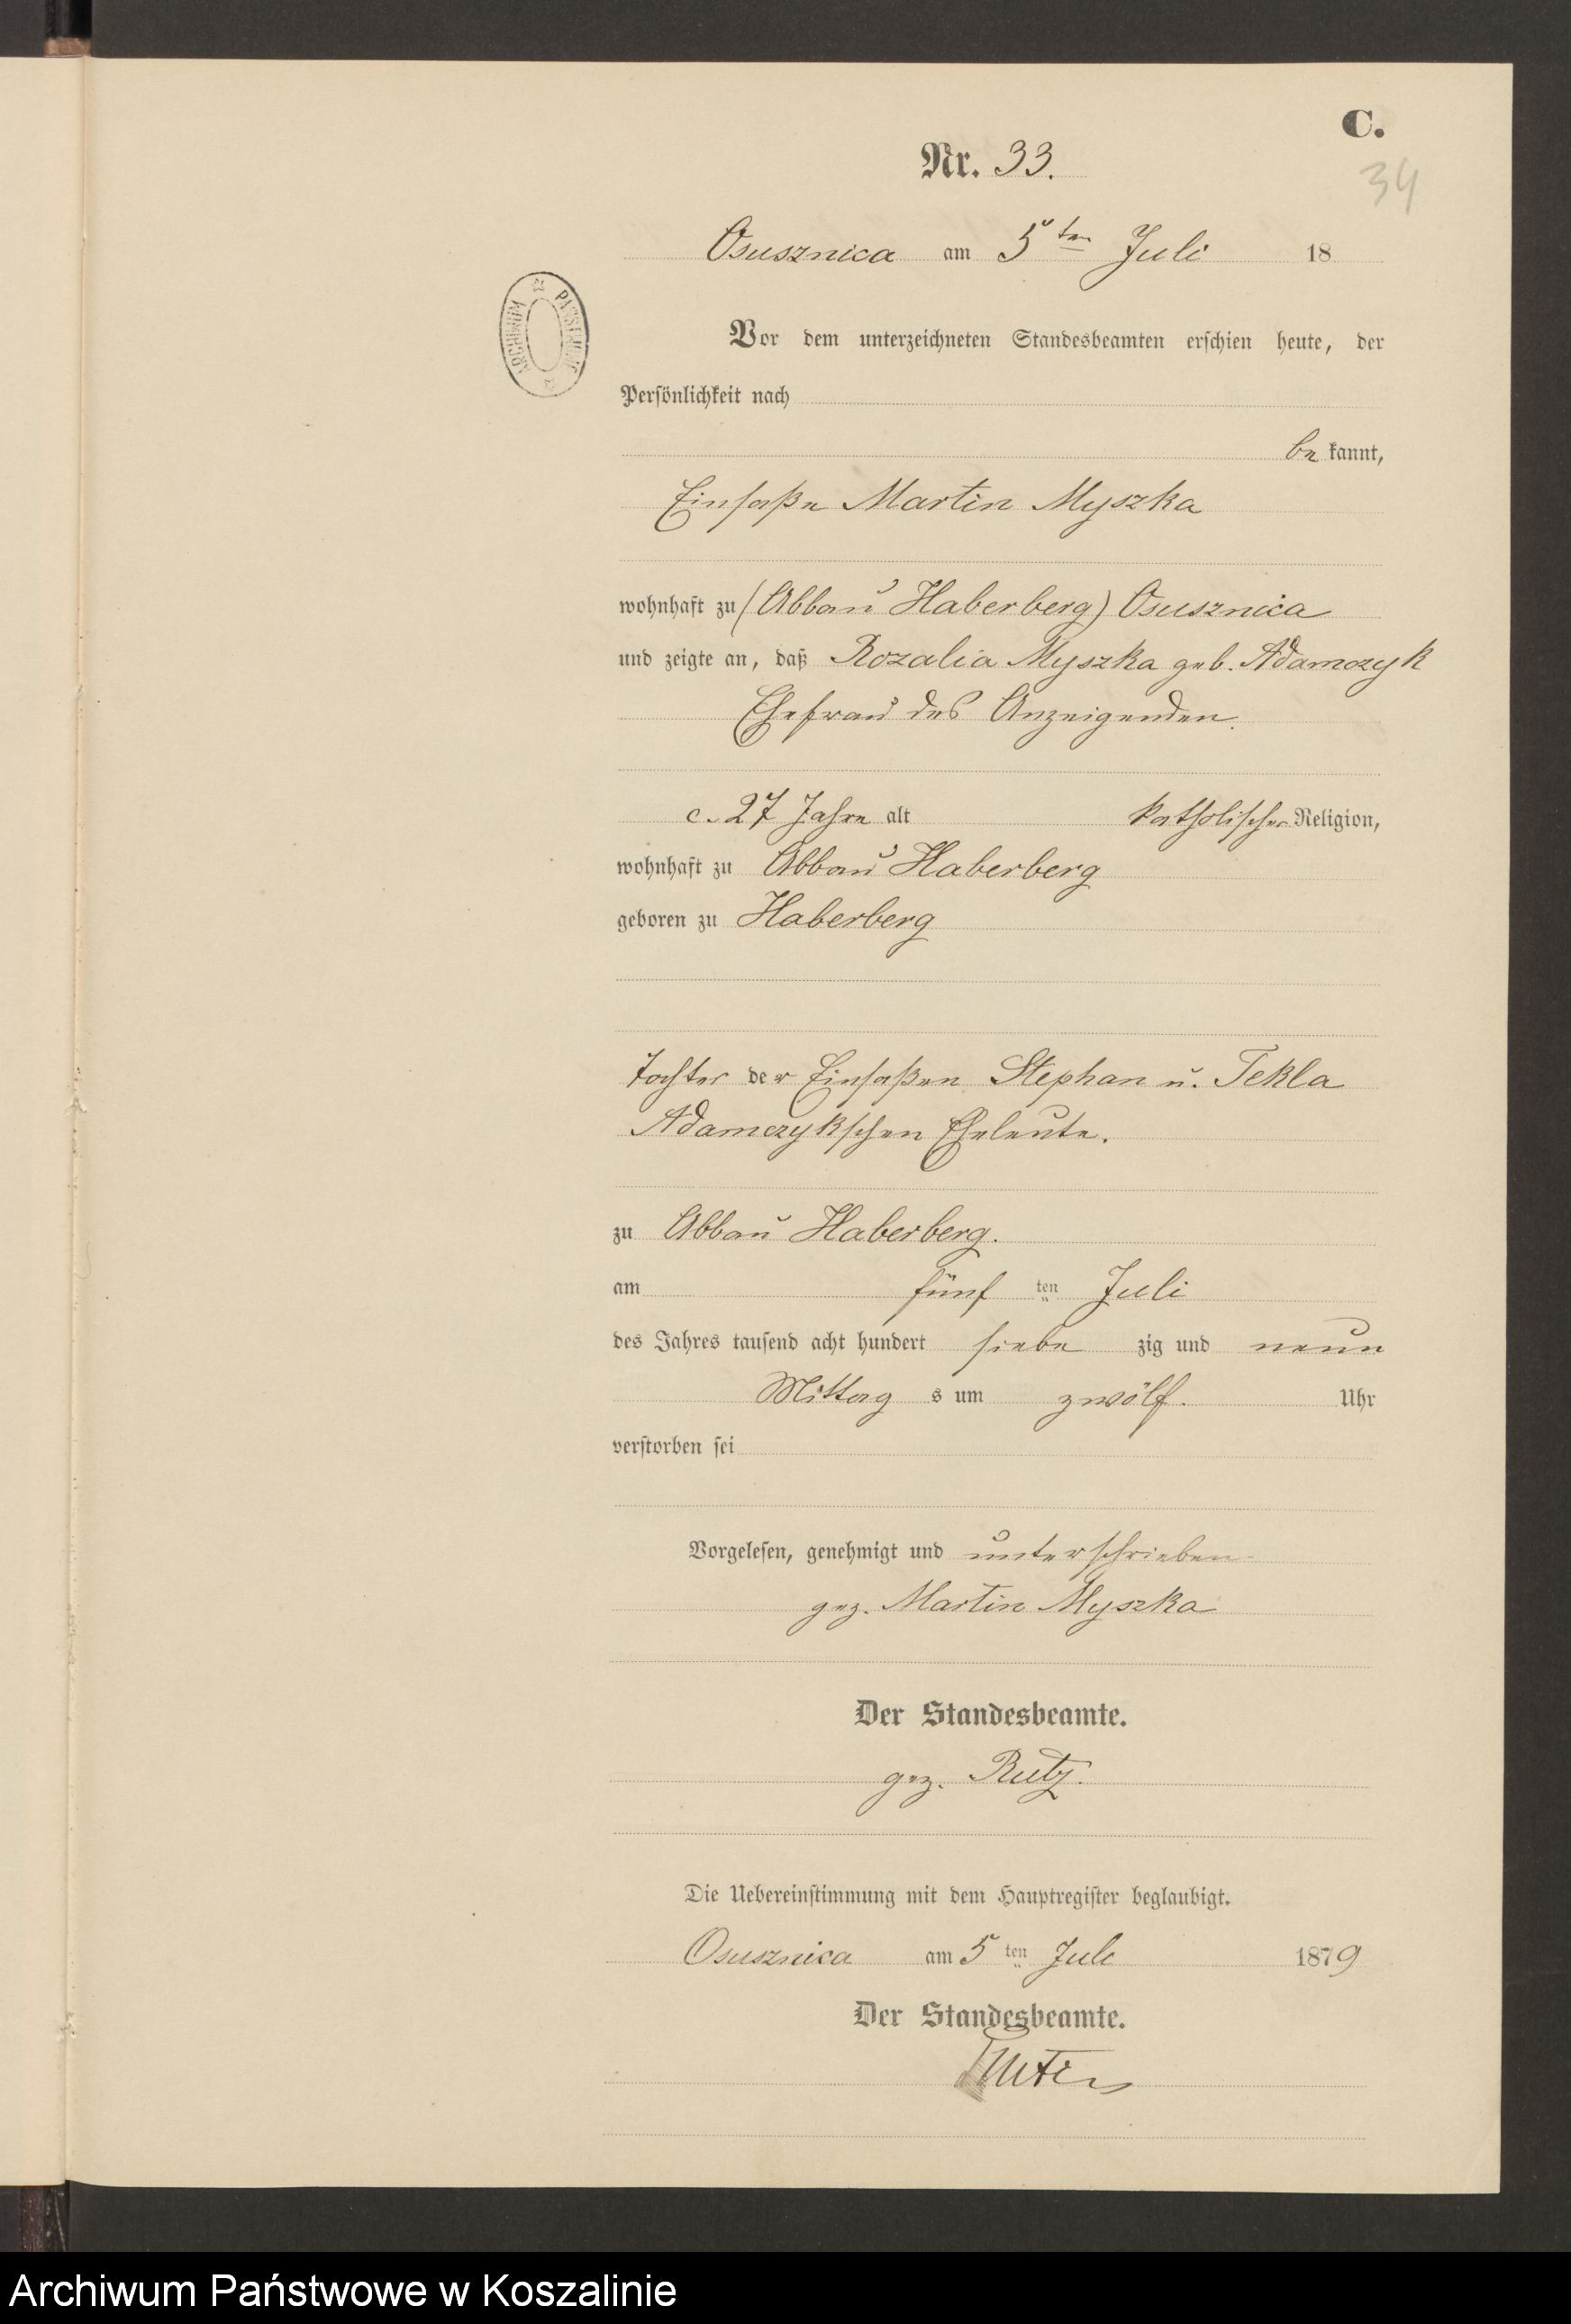 C.
Nr. 33.
34
Osusznica am 5ten Juli 18
ARCHIWUM PAŃSTWOWE
Vor dem unterzeichneten Standesbeamten erschien heute, der
Persönlichkeit nach
be kannt,
Einsaße Martin Myszka
wohnhaft zu (Abbau Haberberg) Osusznica
und zeigte an, daß Rozalia Myszka geb. Adamczyk
Ehefrau des Anzeigenden.
c. 27 Jahre alt katholischer Religion,
wohnhaft zu Abbau Haberberg
geboren zu Haberberg
Tochter der Einsaßen Stephan u. Tekla
Adamczykschen Eheleute.
zu Abbau Haberberg.
am fünf ten Juli
des Jahres tausend acht hundert siebe zig und neun
Mittag s um zwölf. Uhr
verstorben sei
Vorgelesen, genehmigt und unterschrieben
gez. Martin Myszka
Der Standesbeamte.
gez. Rutz.
Die Uebereinstimmung mit dem Hauptregister beglaubigt.
Osusznica am 5 ten Juli 1879
Der Standesbeamte.
Archiwum Państwowe w Koszalinie